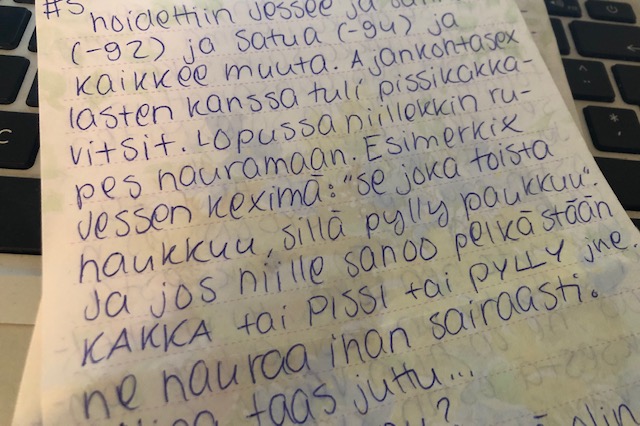 #5 hoidettiin Jessee ja
(-92) ja Satua (-94) ja
kaikkee muuta. Ajankohtasex
lasten kanssa tuli pissikakka-
vitsit. Lopussa niillekkin ru-
pes nauramaan. Esimerkix
Jessen keximä: "se joka toista
haukkuu, sillä pylly paukkuu".
Ja jos niille sanoo pelkästään
KAKKA tai PISSI tai PYLLY jne.
ne nauraa ihan sairaasti.
taas juttu...